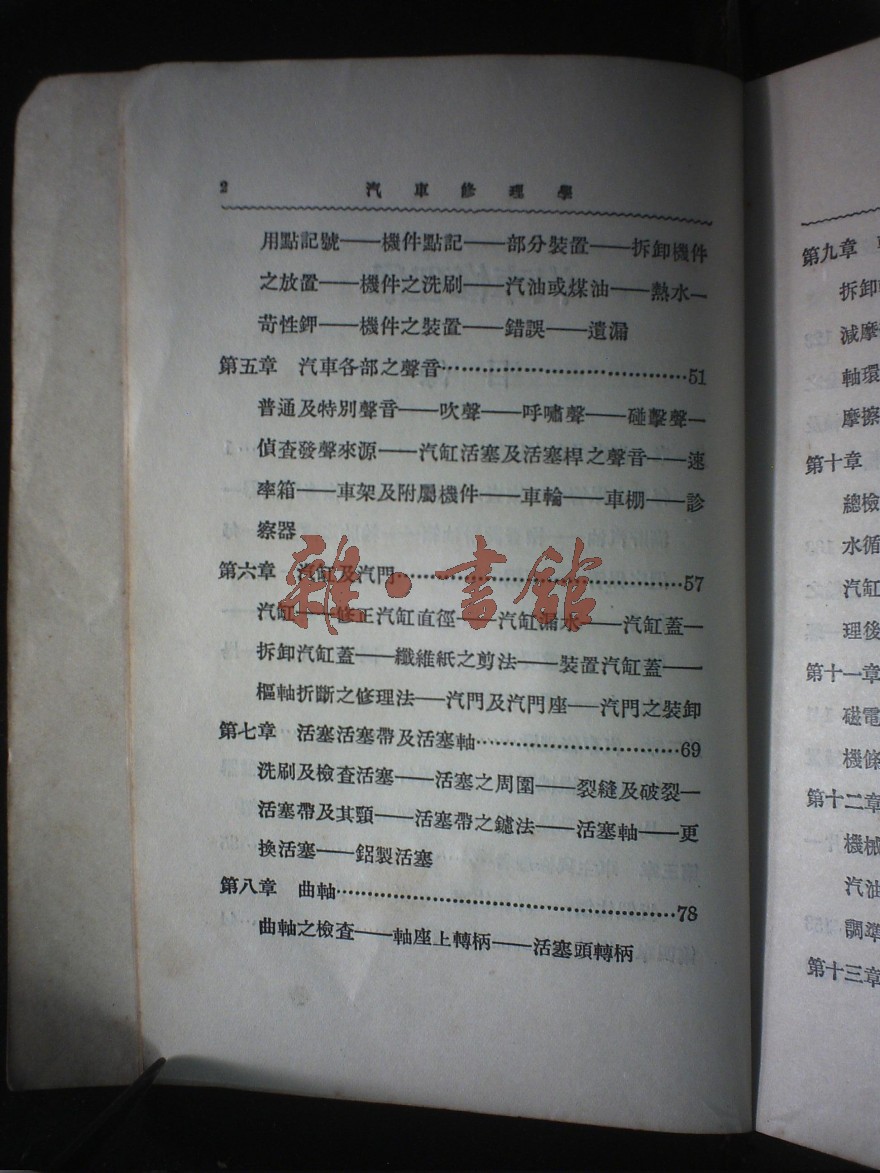 2 汽車修理學
用點記號——機件點記——部分裝置——拆卸機件
之放置——機件之洗刷——汽油或煤油——熱水—
苛性鉀——機件之裝置——錯誤——遺漏
第五章 汽車各部之聲音……………………………51
普通及特別聲音——吹聲——呼嘯聲——碰擊聲—
偵查發聲來源——汽缸活塞及活塞桿之聲音——速
率箱——車架及附屬機件——車輪——車棚——診
察器
第六章 汽缸及汽門…………………………………57
汽缸——修正汽缸直徑——汽缸漏水——汽缸蓋—
拆卸汽缸蓋——纖維紙之剪法——裝置汽缸蓋——
樞軸折斷之修理法——汽門及汽門座——汽門之裝卸
第七章 活塞活塞帶及活塞軸………………………69
洗刷及檢查活塞——活塞之周圍——裂縫及破裂—
活塞帶及其頸——活塞帶之鑪法——活塞軸——更
換活塞——鋁製活塞
第八章 曲軸…………………………………………78
曲軸之檢查——軸座上轉柄——活塞頭轉柄
雜·書館
第九章
拆卸
減摩
軸環
摩擦
第十章
總檢
水循
汽缸
理後
第十一章
磁電
機條
第十二章
機械
汽油
調準
第十三章